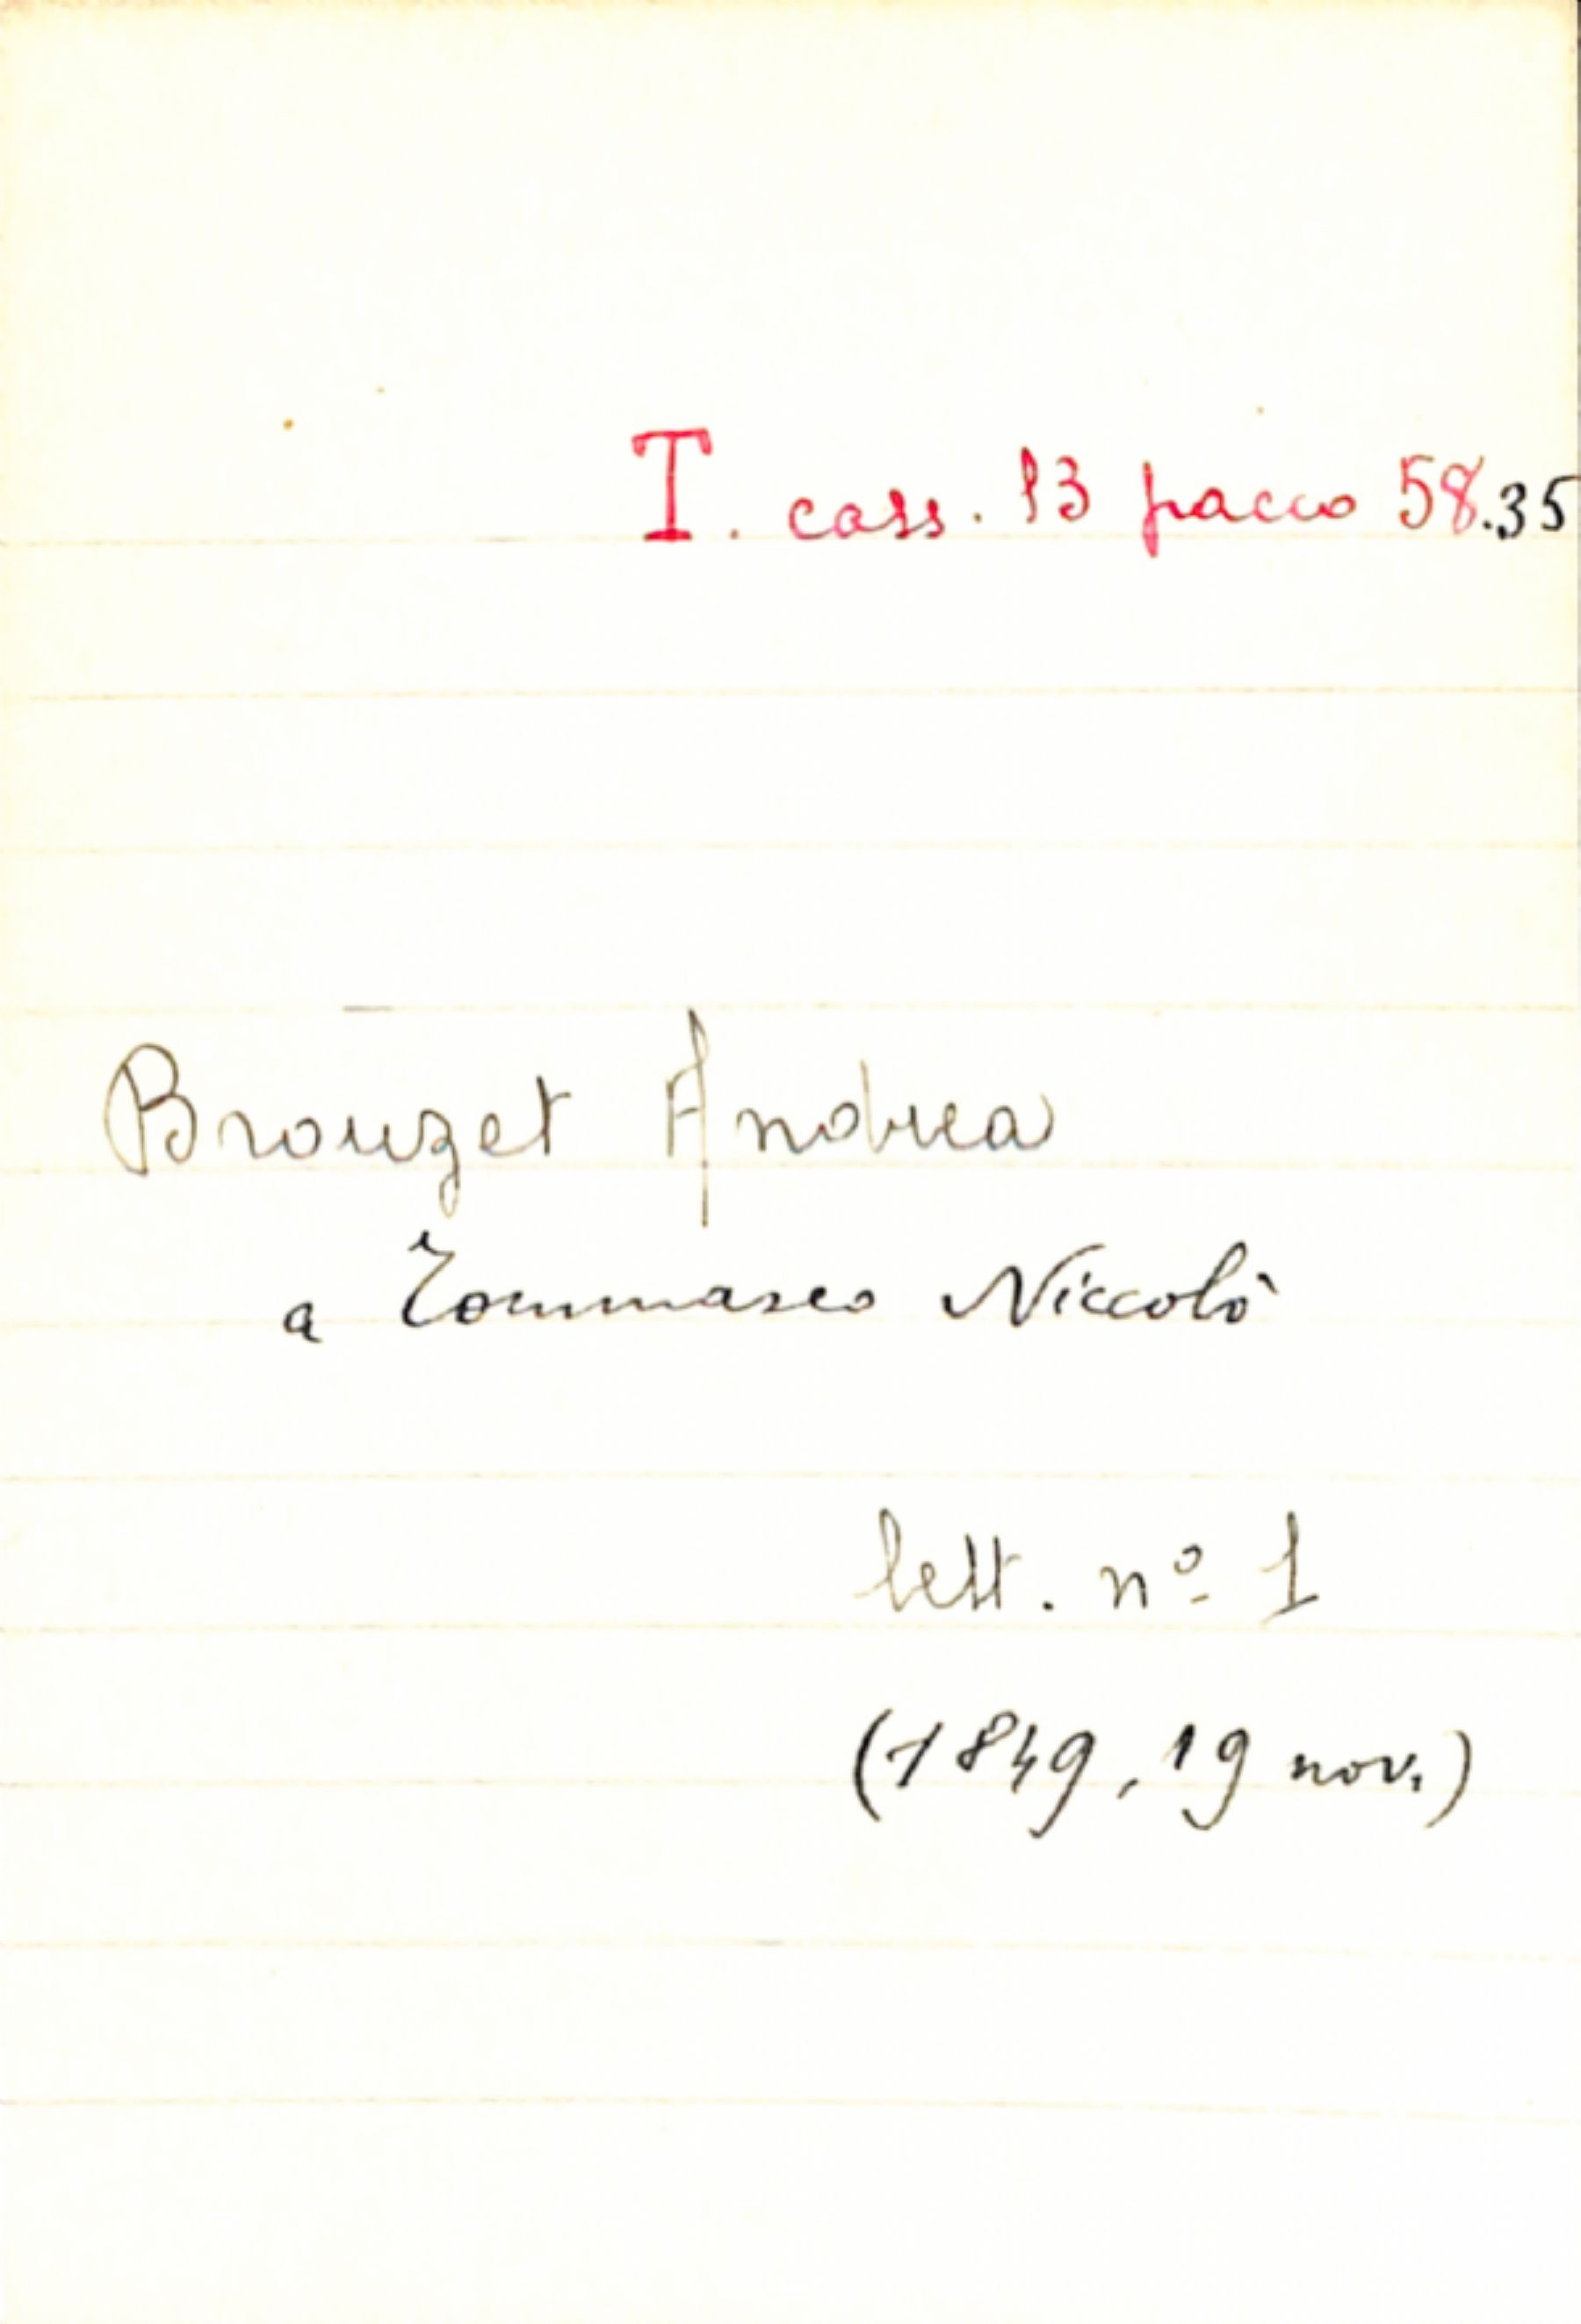 T. cass. 13 pacco 58.35
Brouzet Andrea
a Tommaseo Niccolò
lett. nº 1
(1849, 19 nov.)